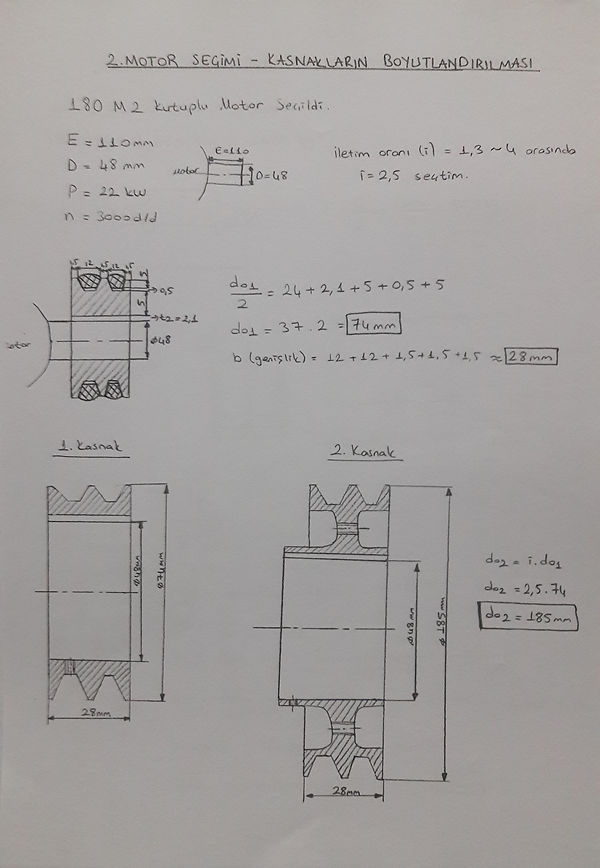 2. MOTOR SEÇİMİ - KASNAKLARIN BOYUTLANDIRILMASI
180 M 2 kutuplu Motor Seçildi.
E = 110 mm
D = 48 mm
P = 22 kW
n = 3000 d/d
E=110
motor
D=48
İletim oranı (i) = 1,3 ~ 4 arasında
i = 2,5 seçtim.
1,5 12 1,5 12 1,5
5
0,5
5
t2=2,1
ø48
motor
do1/2 = 24 + 2,1 + 5 + 0,5 + 5
do1 = 37 . 2 = 74 mm
b (genişlik) = 12 + 12 + 1,5 + 1,5 + 1,5 ≈ 28 mm
1. Kasnak
ø48mm
ø74mm
28mm
2. Kasnak
ø48mm
ø185mm
28mm
do2 = i . do1
do2 = 2,5 . 74
do2 = 185 mm